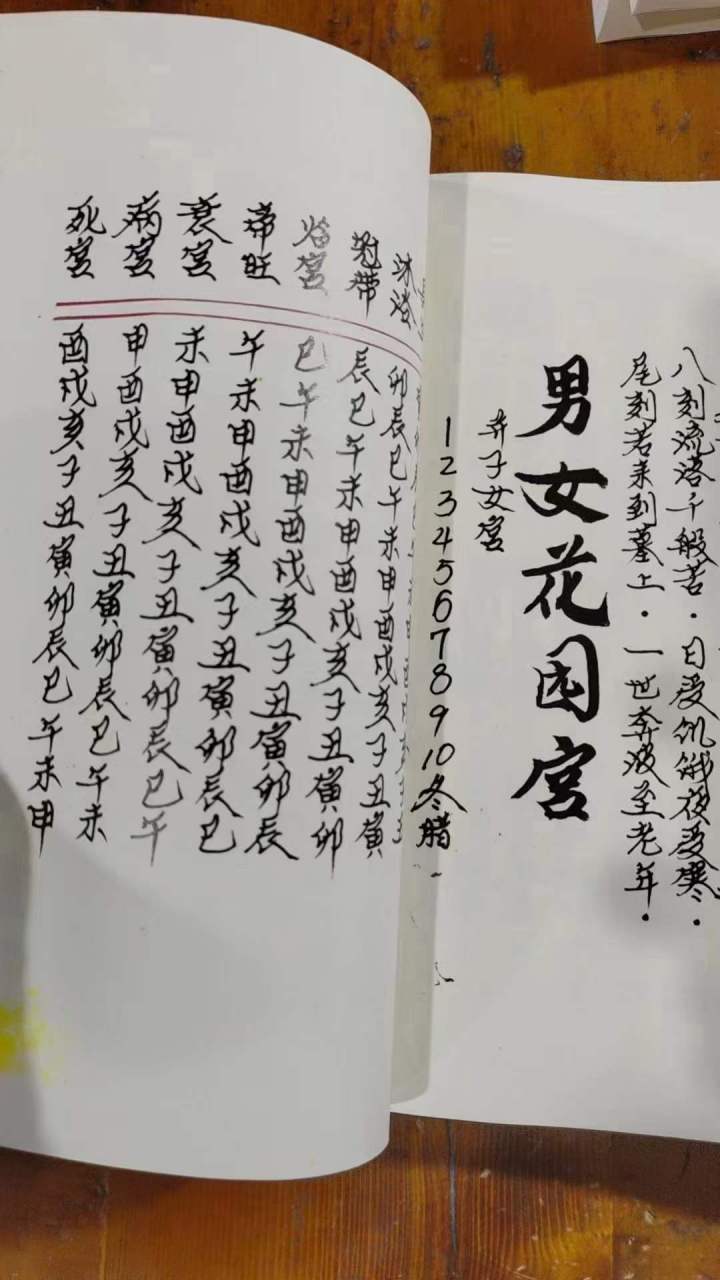 八刻流落千般苦.日受饥饿夜受寒.
尾刻若来到墓上.一世奔波至老年.
男女花园宫
弃子女宫
1 2 3 4 5 6 7 8 9 10 冬 腊
沐浴 卯辰巳午未申酉戌亥子丑寅
冠带 辰巳午未申酉戌亥子丑寅卯
临宫 巳午未申酉戌亥子丑寅卯辰
帝旺 午未申酉戌亥子丑寅卯辰巳
衰宫 未申酉戌亥子丑寅卯辰巳午
病宫 申酉戌亥子丑寅卯辰巳午未
死宫 酉戌亥子丑寅卯辰巳午未申